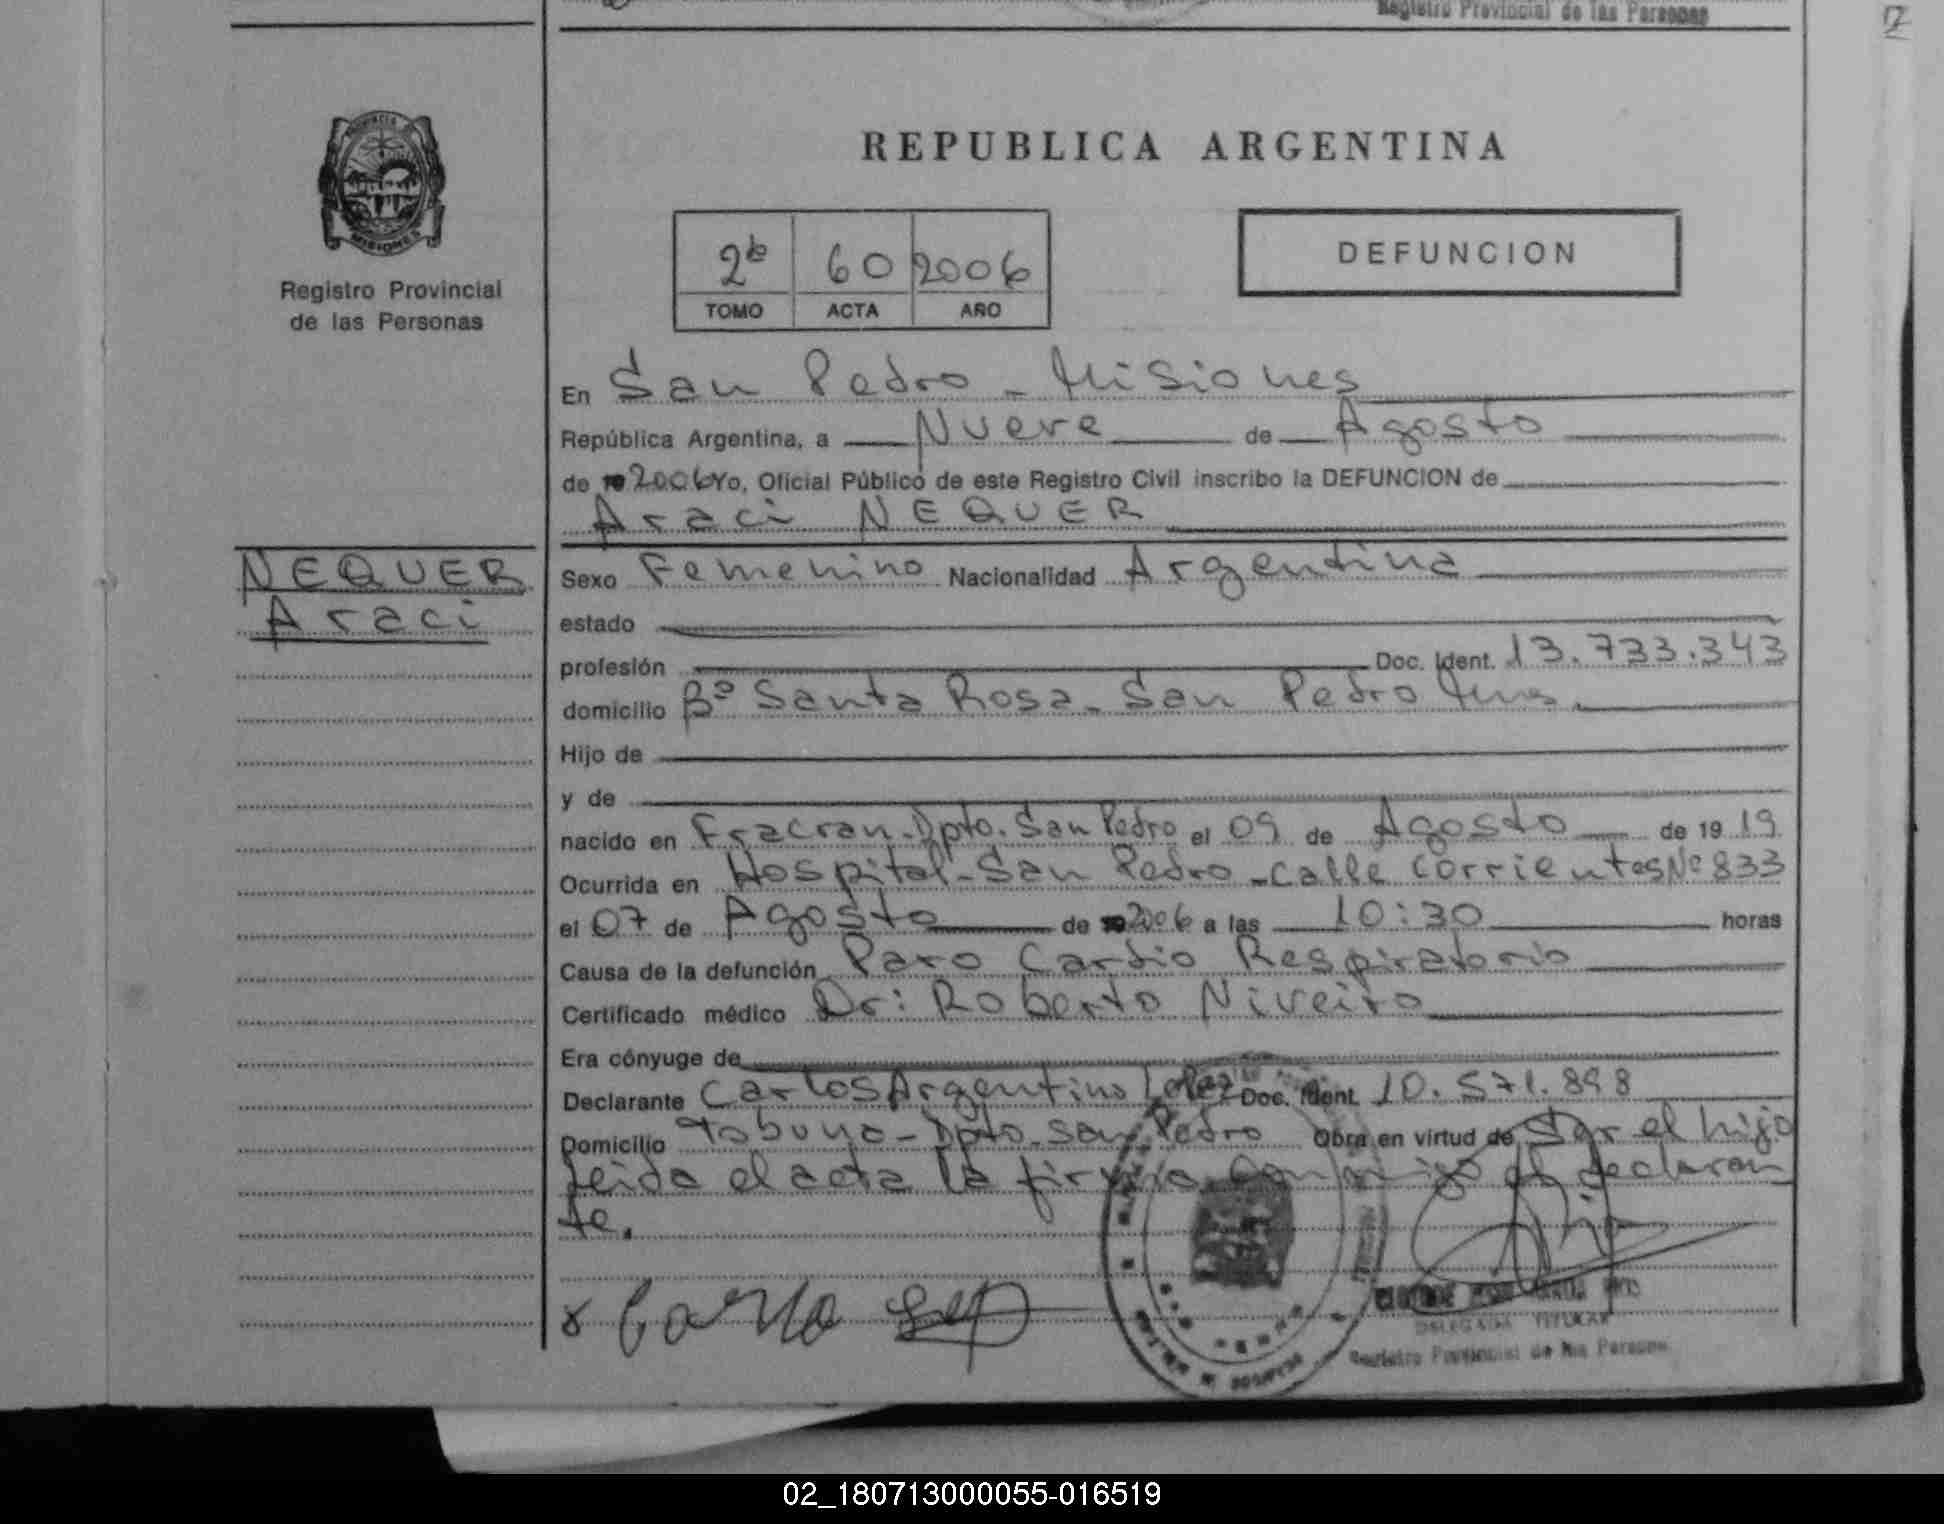 Registro Provincial de las Personas
12
PROVINCIA DE
MISIONES
Registro Provincial
de las Personas
REPUBLICA ARGENTINA
2º 60 2006
TOMO ACTA AÑO
DEFUNCION
En San Pedro - Misiones
República Argentina, a Nueve de Agosto
de 2006 Yo, Oficial Público de este Registro Civil inscribo la DEFUNCION de
Araci NEQUER
NEQUER
Araci
Sexo Femenino Nacionalidad Argentina
estado
profesión Doc. Ident. 13.733.343
domicilio Bº Santa Rosa - San Pedro Mnes.
Hijo de
y de
nacido en Fracran - Dpto. San Pedro el 09 de Agosto de 1919
Ocurrida en Hospital - San Pedro - Calle Corrientes Nº 833
el 07 de Agosto de 2006 a las 10:30 horas
Causa de la defunción Paro Cardio Respiratorio
Certificado médico Dr: Roberto Niveiro
Era cónyuge de
Declarante Carlos Argentino Lopez Doc. Ident. 10.571.898
Domicilio Tobuna - Dpto. San Pedro Obra en virtud de Ser el hijo
leida el acta la firma conmigo el declaran
te.
DELEGADA TITULAR
Registro Provincial de las Personas
02_180713000055-016519